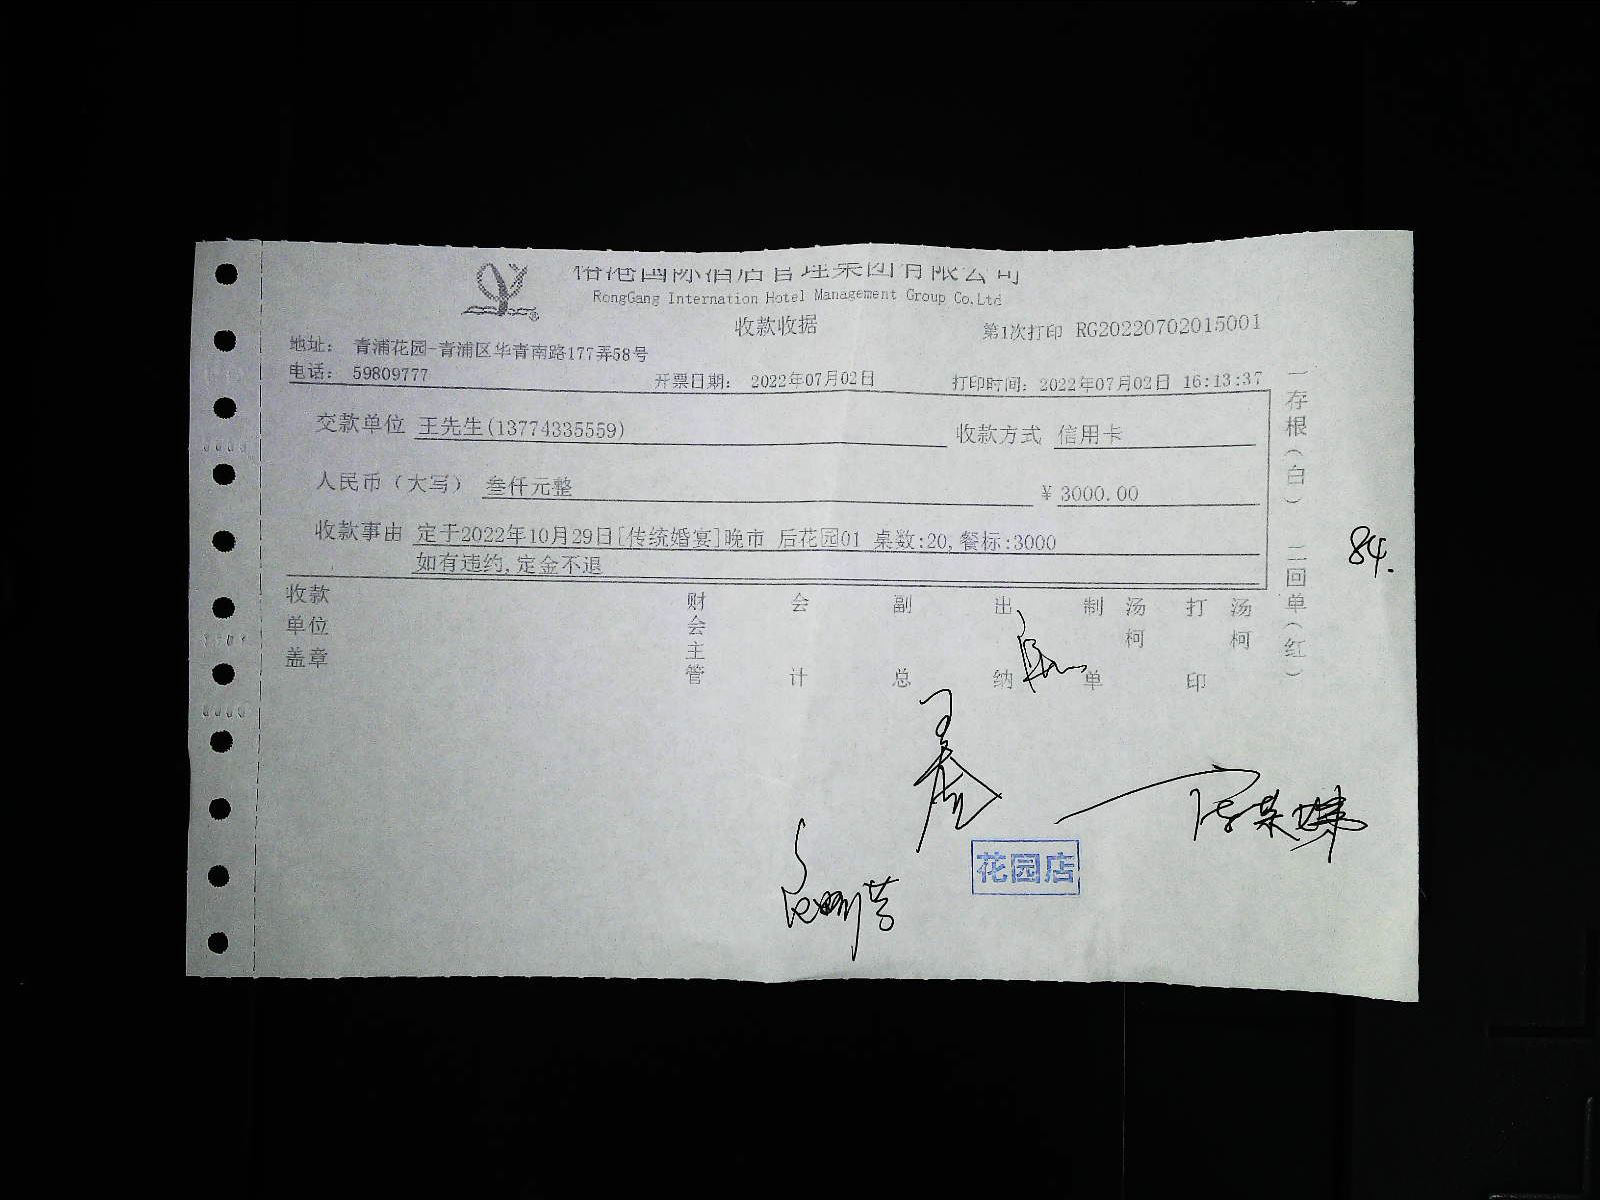 国际酒店管理集团有限公司
RongGang Internation Hotel Management Group Co.Ltd
收款收据
第1次打印 RG20220702015001
地址： 青浦花园-青浦区华青南路177弄58号
电话： 59809777
开票日期： 2022年07月02日
打印时间：2022年07月02日 16:13:37
交款单位 王先生(13774335559)
收款方式 信用卡
人民币（大写） 叁仟元整
￥3000.00
收款事由 定于2022年10月29日[传统婚宴]晚市 后花园01 桌数:20,餐标:3000
如有违约,定金不退
一存根（白） 二回单（红）
84.
收款单位盖章
财会主管
会计
副总
出纳
制单 汤柯
打印 汤柯
花园店